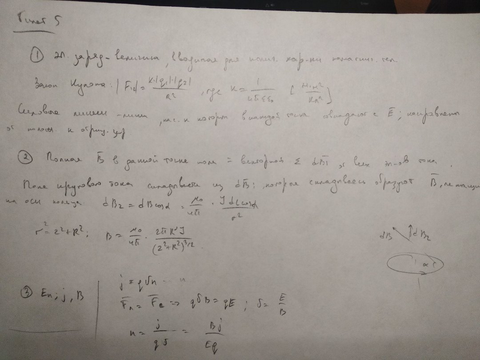 Билет 5
① эл. заряд - величина, вводимая для
Закон Кулона: |F₁₂| = k|q₁||q₂| / R², где k = 1/(4πεε₀) [Н·м²/Кл²]
Силовая линия - линия, к которой в каждой точке совпадает с E̅; направлена
от полож к отриц.
② Полная B̅ в данной точке поля = векторной Σ dB̅i, и всех
Поле кругового тока складывается из dB̅: которые складываясь образуют B̅,
на оси кольца dB₂ = dB cosα · μ₀/4π · J dl cosα / r²
r² = z² + R²; B = μ₀/4π · 2πR²J / (z² + R²)^3/2
dB dB₂
③ Eн; j, B
j = qϑn
F̅л = F̅e => qϑB = qE; ϑ = E/B
n = j/qϑ = Bj/Eq